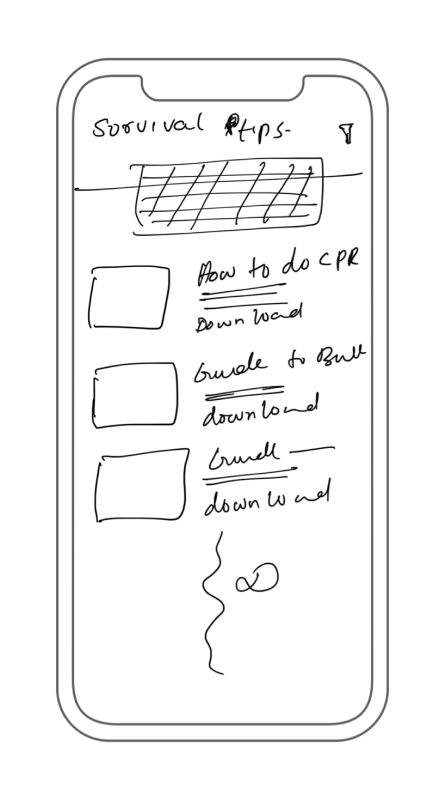 Survival tips-
How to do CPR
Download
Guide to
download
download